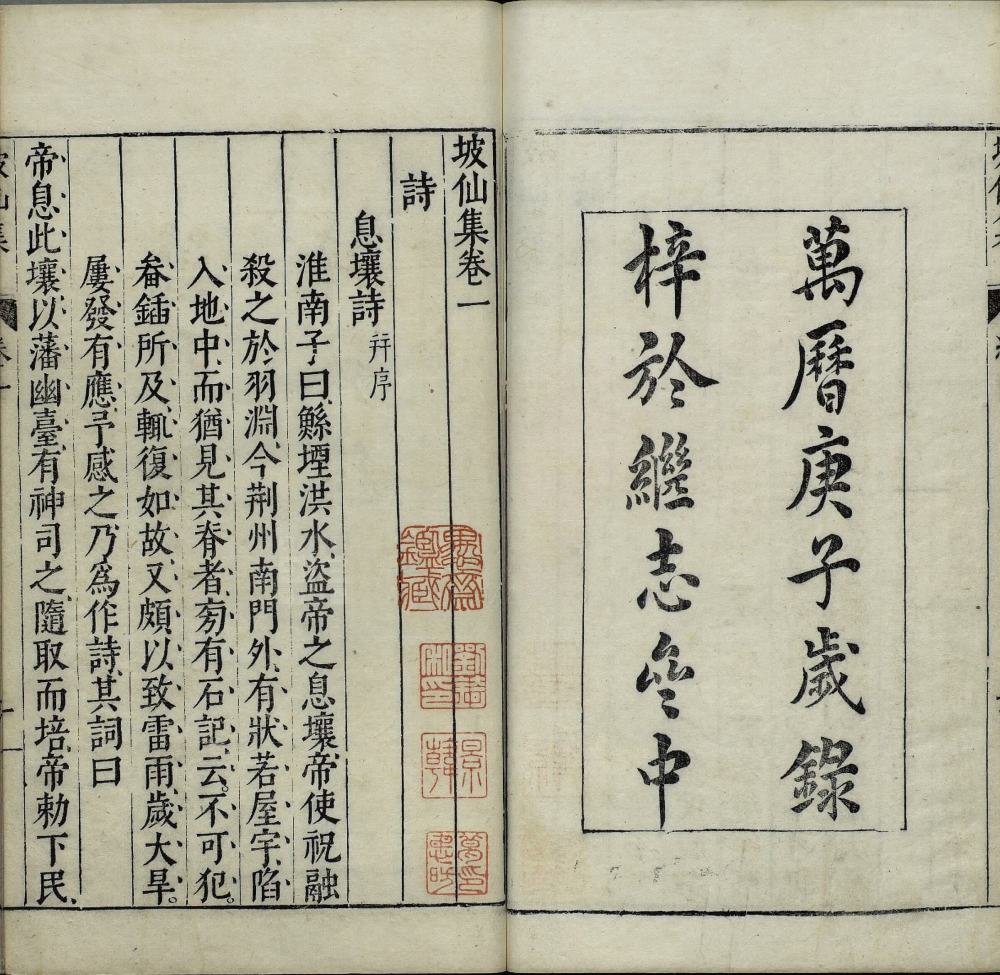 萬曆庚子歲錄
梓於繼志亝中
坡仙集卷一
詩
息壤詩 幷序
淮南子曰鯀堙洪水盜帝之息壤帝使祝融
殺之於羽淵今荆州南門外有狀若屋宇陷
入地中而猶見其脊者旁有石記云不可犯
畚鍤所及輒復如故又頗以致雷雨歲大旱
屢發有應予感之乃爲作詩其詞曰
帝息此壤以藩幽臺有神司之隨取而培帝勑下民
卷一
一